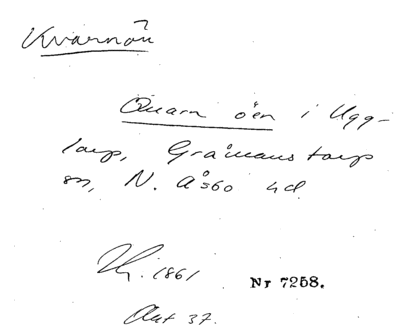 Kvarnön
Quarn öen i Ugg-
larp, Gråmanstorps
sn, N. Åsbo hd
1861
Nr 7258.
Akt 37.